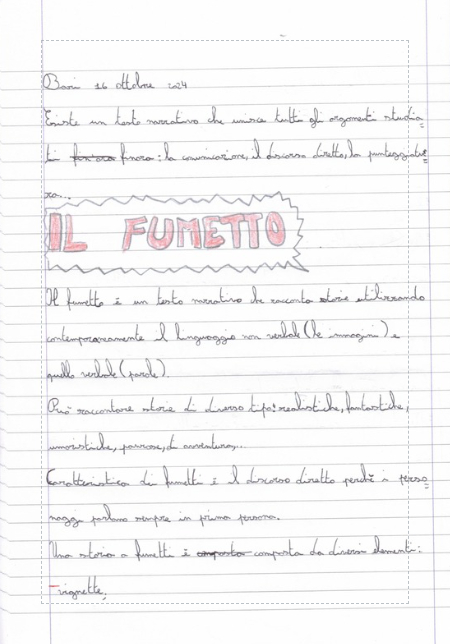 Bari 16 ottobre 2024
Esiste un testo narrativo che unisce tutti gli argomenti studia
ti finora: la comunicazione, il discorso diretto, la punteggiatu
ra...
IL FUMETTO
Il fumetto è un testo narrativo che racconta storie utilizzando
contemporaneamente il linguaggio non verbale (le immagini) e
quello verbale (parole).
Può raccontare storie di diverso tipo: realistiche, fantastiche,
umoristiche, paurose, di avventura,..
Caratteristica dei fumetti è il discorso diretto perchè i perso
naggi parlano sempre in prima persona.
Una storia a fumetti è composta da diversi elementi:
- vignette,